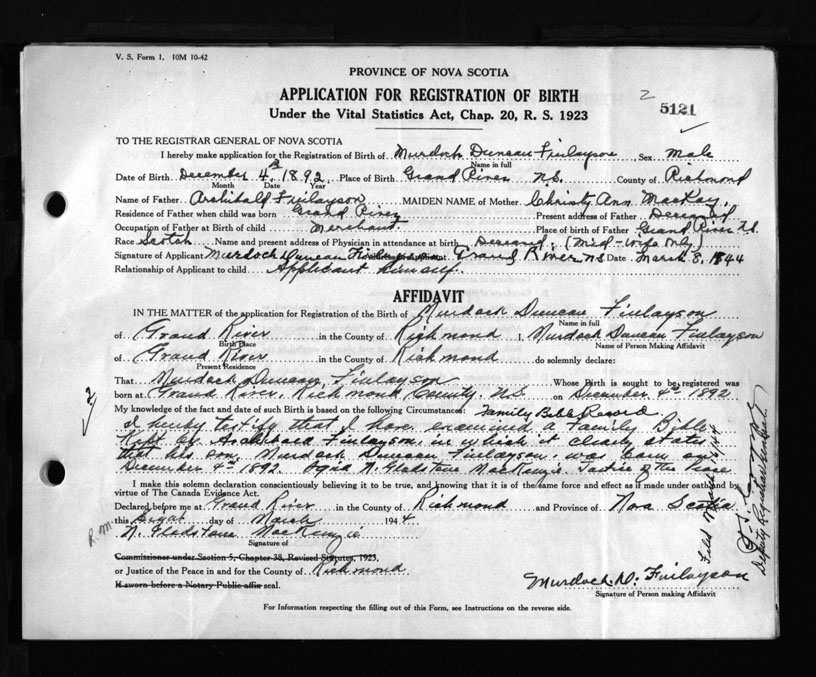 V. S. Form 1. 10M 10-42
PROVINCE OF NOVA SCOTIA
2
5121
APPLICATION FOR REGISTRATION OF BIRTH
Under the Vital Statistics Act, Chap. 20, R. S. 1923
TO THE REGISTRAR GENERAL OF NOVA SCOTIA
I hereby make application for the Registration of Birth of Murdoch Duncan Finlayson Sex Male
Name in full
Date of Birth December 4th 1892 Place of Birth Grand River N.S. County of Richmond
Month Date Year
Name of Father Archibald Finlayson MAIDEN NAME of Mother Christy Ann MacKay.
Residence of Father when child was born Grand River Present address of Father Deceased
Occupation of Father at Birth of child Merchant. Place of birth of Father Grand River N.S.
Race Scotch Name and present address of Physician in attendance at birth Deceased. (Mid-wife only)
Signature of Applicant Murdoch Duncan Finlayson Grand River N.S. Date March 8, 1944
Relationship of Applicant to child Applicant himself.
AFFIDAVIT
IN THE MATTER of the application for Registration of the Birth of Murdoch Duncan Finlayson
Name in full
of Grand River in the County of Richmond I, Murdoch Duncan Finlayson
Birth Place Name of Person Making Affidavit
of Grand River in the County of Richmond do solemnly declare:
Present Residence
That Murdoch Duncan Finlayson Whose Birth is sought to be registered was
born at Grand River, Richmond County, N.S. on December 4th 1892
My knowledge of the fact and date of such Birth is based on the following Circumstances: Family Bible Record.
I hereby testify that I have examined a Family Bible
Kept by Archibald Finlayson, in which it clearly states
that his son, Murdoch Duncan Finlayson was born on
December 4th 1892. N. Gladstone MacKenzie. Justice of the Peace
I make this solemn declaration conscientiously believing it to be true, and knowing that it is of the same force and effect as if made under oath and by
virtue of The Canada Evidence Act.
Declared before me at Grand River in the County of Richmond and Province of Nova Scotia
this Eight day of March 1944
R.M.
N. Gladstone MacKenzie
Signature of
Commissioner under Section 5, Chapter 38, Revised Statutes, 1923,
or Justice of the Peace in and for the County of Richmond
If sworn before a Notary Public affix seal.
Murdoch D. Finlayson
Signature of Person making Affidavit
For Information respecting the filling out of this Form, see Instructions on the reverse side.
Deputy Registrar General